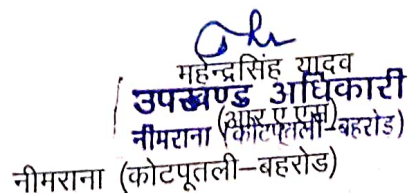 महेन्द्रसिंह यादव
उपखण्ड अधिकारी
(आर ए एस)
नीमराना (कोटपूतली-बहरोड)
नीमराना (कोटपूतली–बहरोड)